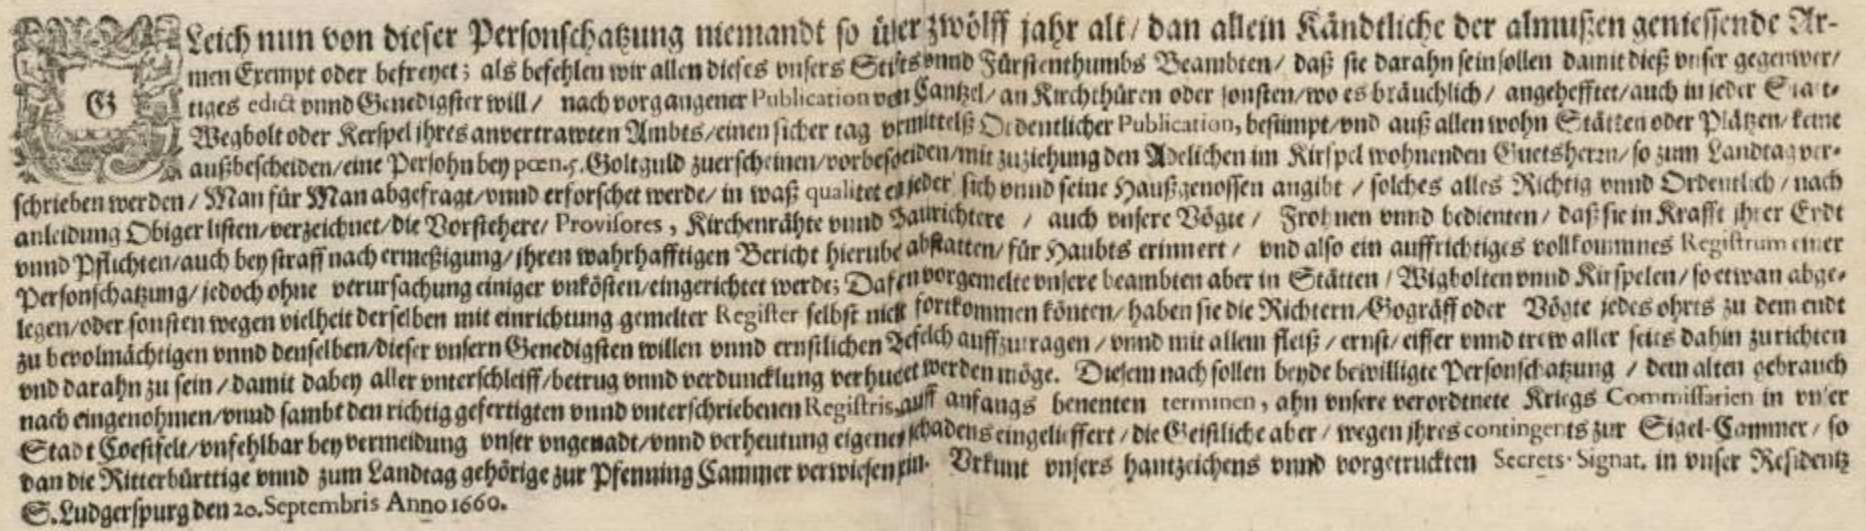 GLeich nun von dieser Personschatzung niemandt so üver zwölff jahr alt / dan allein Kändtliche der almußen geniessende Ar-
men Exempt oder befreyet; als befehlen wir allen dieses vnsers Stiffts vnnd Fürstenthumbs Beambten / daß sie darahn sein sollen damit dieß vnser gegenwer/
tiges edict vnnd Genedigster will / nach vorgangener Publication von Cantzel / an Kirchthüren oder sonsten / wo es bräuchlich / angehefftet / auch in jeder Statt-
Wegbolt oder Kerspel ihres anvertrawten Ambts / einen sicher tag vermittelß Ordentlicher Publication, bestimpt / vnd auß allen wohn Stätten oder Plätzen / keine
außbescheiden / eine Persohn bey pœn. 5. Goltguld zuerscheinen / vorbescheiden / mit zuziehung den Adelichen im Kirspel wohnenden Guetsherrn / so zum Landtag ver-
schrieben werden / Man für Man abgefragt / vnnd erforschet werde / in waß qualitet ein jeder sich vnnd seine Haußgenossen angibt / solches alles Richtig vnnd Ordentlich / nach
anleidung Obiger listen / verzeichnet / die Vorstehere / Provisores, Kirchenrähte vnnd Baurichtere / auch vnsere Vögte / Frohnen vnnd bedienten / daß sie in Krafft ihrer Eydt
vnnd Pflichten / auch bey straff nach ermeßigung / ihren wahrhafftigen Bericht hierube abstatten / für Haubts erinnert / vnd also ein auffrichtiges vollkommnes Registrum einer
Personschatzung / jedoch ohne verursachung einiger vnkösten / eingerichtet werde; Dafern vorgemelte vnsere beambten aber in Stätten / Wigbolten vnnd Kirspelen / so etwan abge-
legen / oder sonsten wegen vielheit derselben mit einrichtung gemelter Register selbst nicht fortkommen könten / haben sie die Richtern / Gogräff oder Vögte jedes ohrts zu dem endt
zu bevolmächtigen vnnd denselben / dieser vnsern Genedigsten willen vnnd ernstlichen Befelch auffzutragen / vnnd mit allem fleiß / ernst / eiffer vnnd trew aller seits dahin zurichten
vnd darahn zu sein / damit dabey aller vnterschleiff / betrug vnnd verduncklung verhuetet werden möge. Diesem nach sollen beyde bewilligte Personschatzung / dem alten gebrauch
nach eingenohmen / vnnd sambt den richtig gefertigten vnnd vnterschriebenen Registris, auff anfangs benenten terminen, ahn vnsere verordtnete Kriegs Commissarien in vnser
Stadt Coesfelt / vnfehlbar bey vermeidung vnser vngenadt / vnnd verheutung eigenes schadens eingelieffert / die Geistliche aber / wegen ihres contingents zur Sigel-Cammer / so
dan die Ritterbürttige vnnd zum Landtag gehörige zur Pfenning Cammer verwiesen sein. Vrkunt vnsers hantzeichens vnnd vorgetruckten Secrets-Signat. in vnser Residentz
S. Ludgerspurg den 20. Septembris Anno 1660.